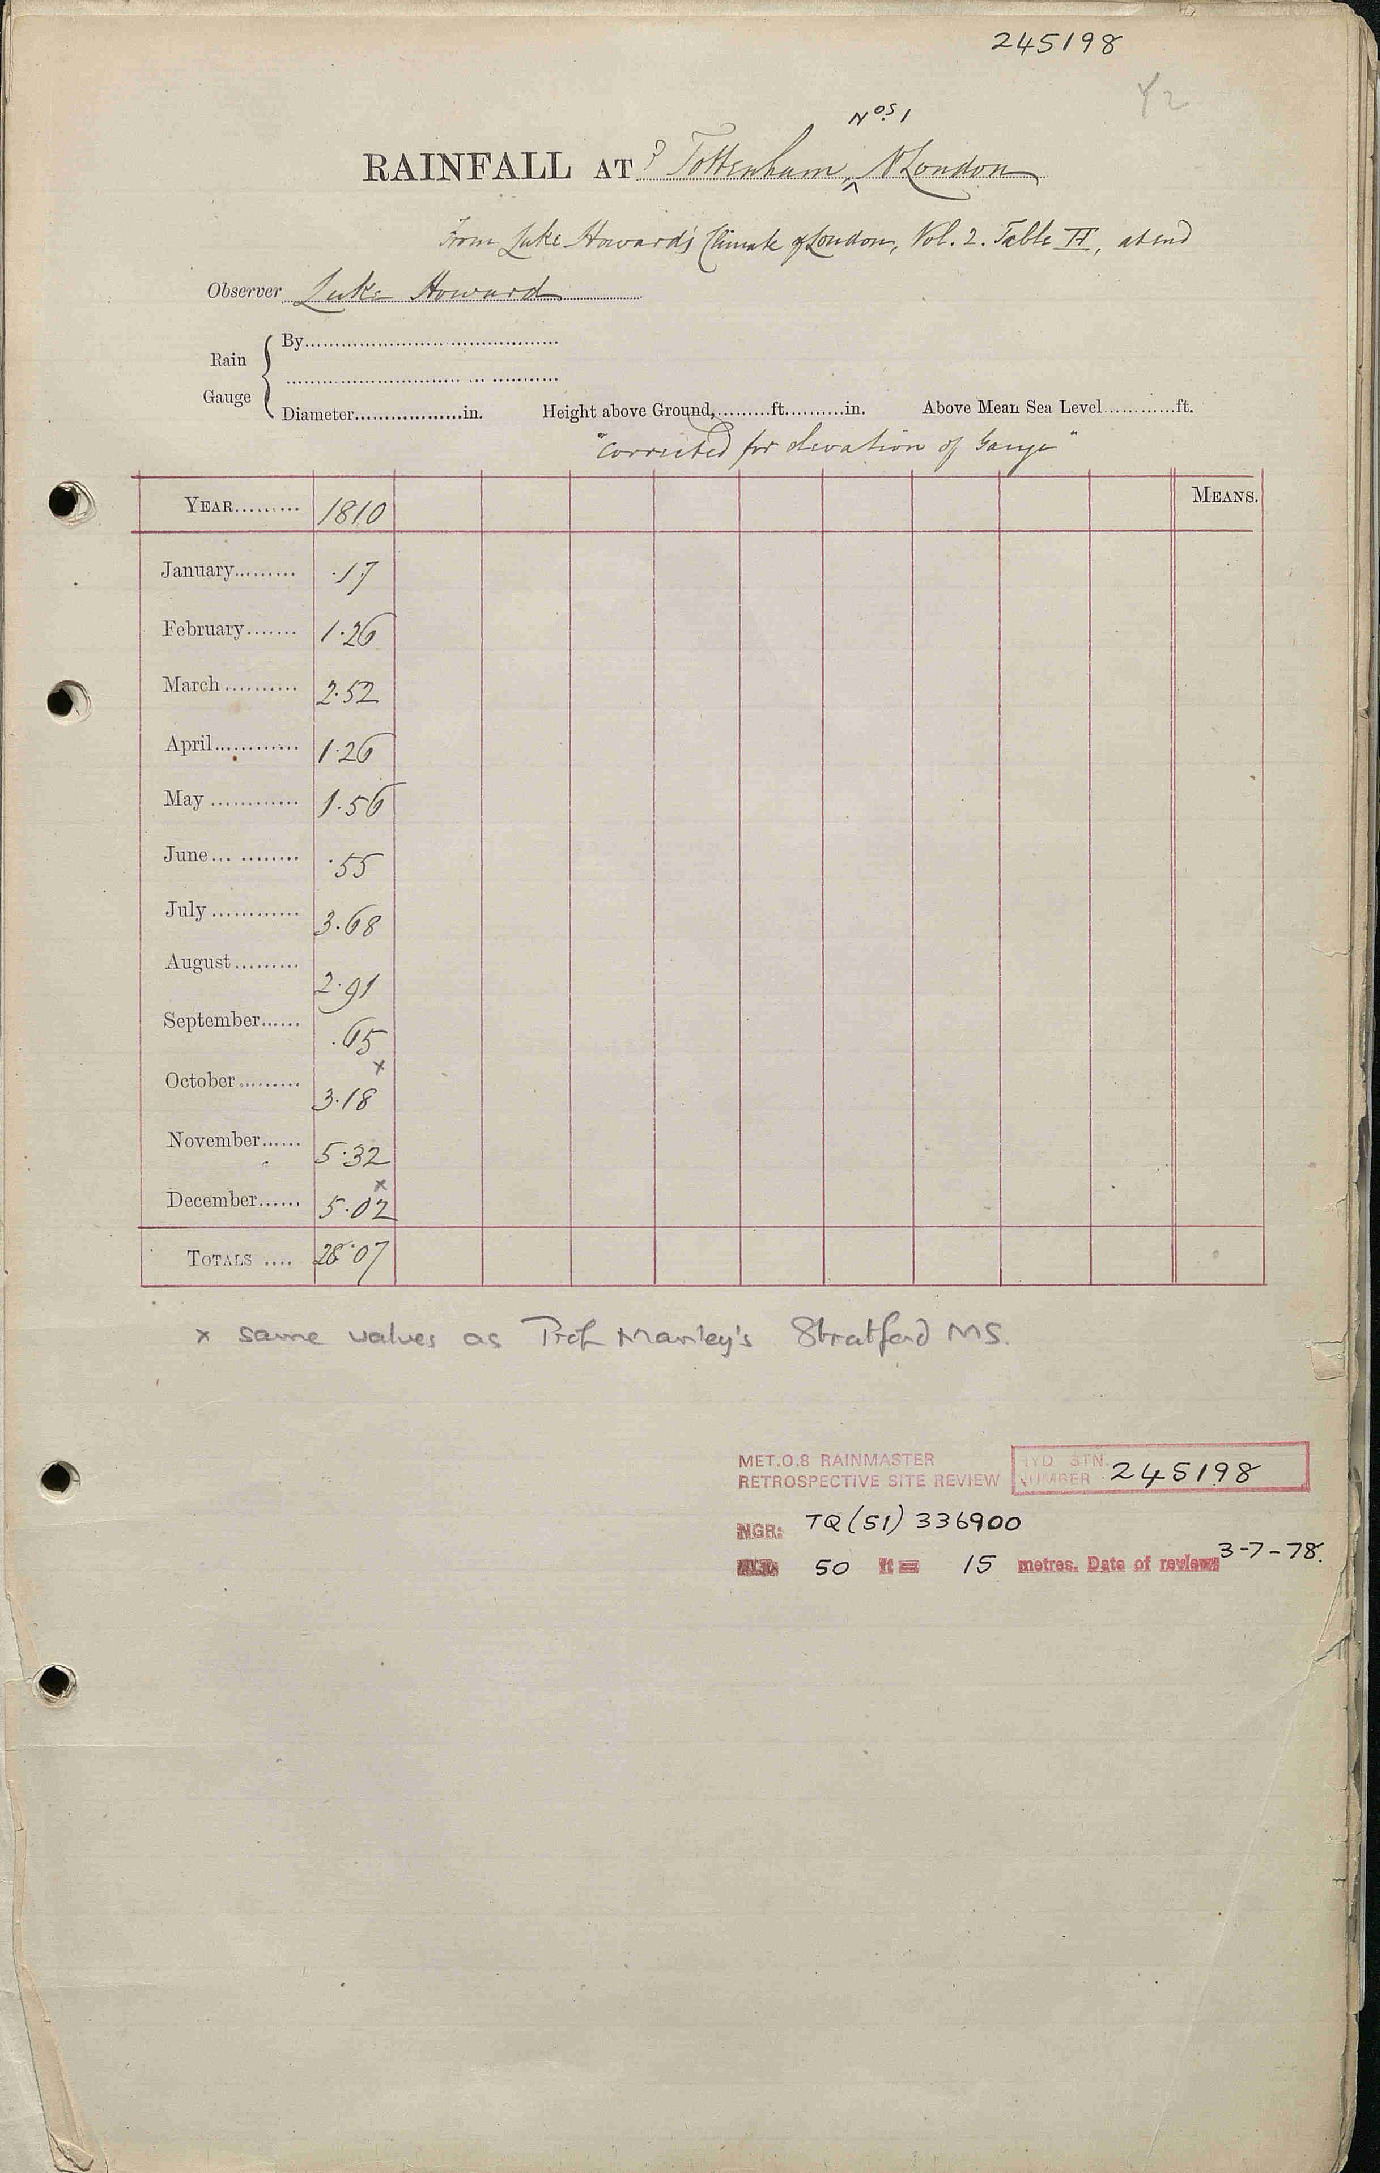 245198
Y2
Nos 1
RAINFALL AT ? Tottenham, ^ N London
From Luke Howard's Climate of London, Vol. 2. Table II, at end
Observer Luke Howard
Rain Gauge { By
Diameter in. Height above Ground, ft. in. Above Mean Sea Level ft.
"corrected for elevation of gauge"
YEAR 1810 MEANS.
January .17
February 1.26
March 2.52
April 1.26
May 1.56
June .55
July 3.68
August 2.91
September .65
October 3.18 x
November 5.32
December 5.02 x
TOTALS 28.07
x same values as Prof Manley's Stratford MS.
MET.O.8 RAINMASTER
RETROSPECTIVE SITE REVIEW
HYD STN. NUMBER 245198
NGR: TQ (51) 336900
50 ft = 15 metres. Date of review 3-7-78.